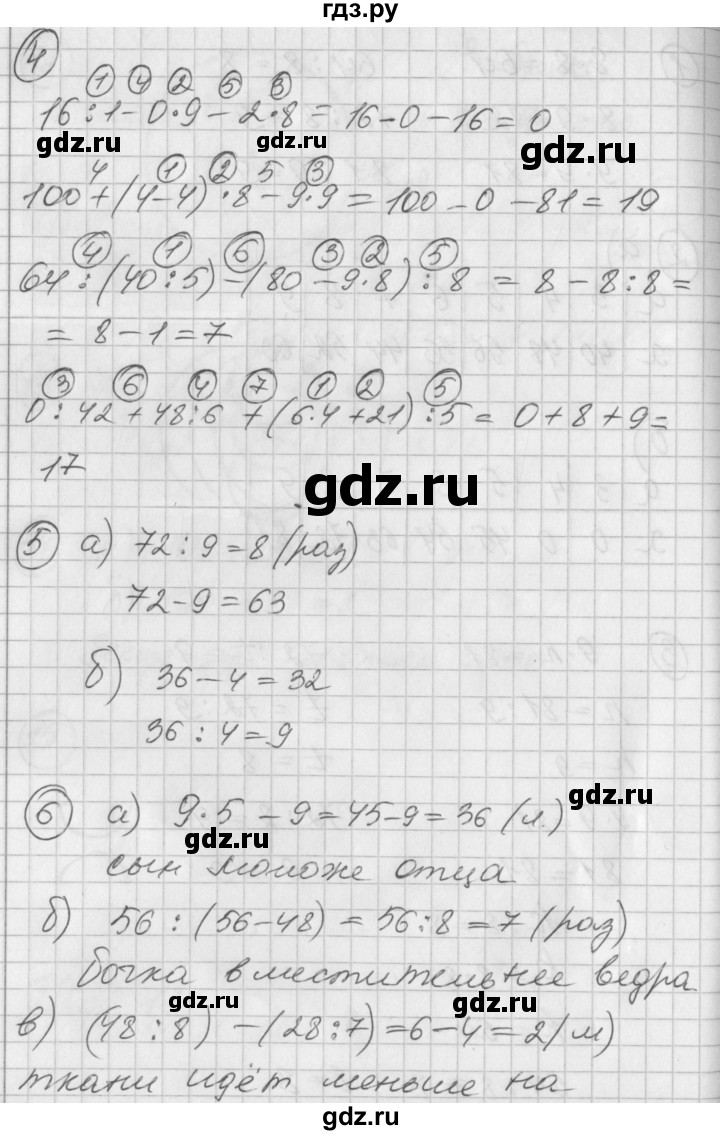 гдз.ру
4
1 4 2 5 3
16 : 1 - 0 · 9 - 2 · 8 = 16 - 0 - 16 = 0
gdz.ru gdz.ru gdz.ru
4 1 2 5 3
100 + (4 - 4) · 8 - 9 · 9 = 100 - 0 - 81 = 19
4 1 6 3 2 5
64 : (40 : 5) - (80 - 9 · 8) : 8 = 8 - 8 : 8 =
= 8 - 1 = 7
3 6 4 7 1 2 5
0 : 42 + 48 : 6 + (6 · 4 + 21) : 5 = 0 + 8 + 9 =
17
gdz.ru
5 а) 72 : 9 = 8 (раз)
72 - 9 = 63
б) 36 - 4 = 32
36 : 4 = 9
gdz.ru
6 а) 9 · 5 - 9 = 45 - 9 = 36 (л.)
gdz.ru
сын моложе отца
б) 56 : (56 - 48) = 56 : 8 = 7 (раз)
бочка вместительнее ведра
gdz.ru gdz.ru
в) (48 : 8) - (28 : 7) = 6 - 4 = 2 (м)
ткани идёт меньше на
gdz.ru